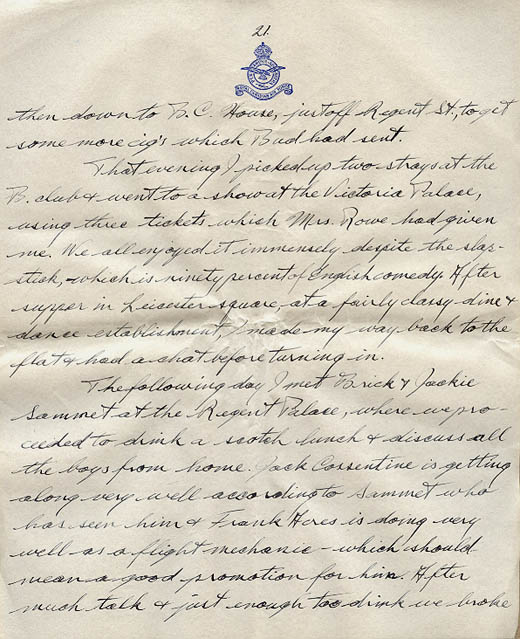 21.
then down to B.C. House, just off Regent St., to get
some more cig's which Bud had sent.
That evening I picked up two strays at the
B. club & went to a show at the Victoria Palace,
using three tickets which Mrs. Rowe had given
me. We all enjoyed it immensely despite the slap-
stick, - which is ninety percent of English comedy. After
supper in Leicester square at a fairly classy dine &
dance establishment, I made my way back to the
flat & had a chat before turning in.
The following day I met Brick & Jackie
Sammet at the Regent Palace, where we pro-
ceeded to drink a scotch lunch & discuss all
the boys from home. Jack Cossentine is getting
along very well according to Sammet who
has seen him & Frank is doing very
well as a flight mechanic - which should
mean a good promotion for him. After
much talk & just enough too drink we broke